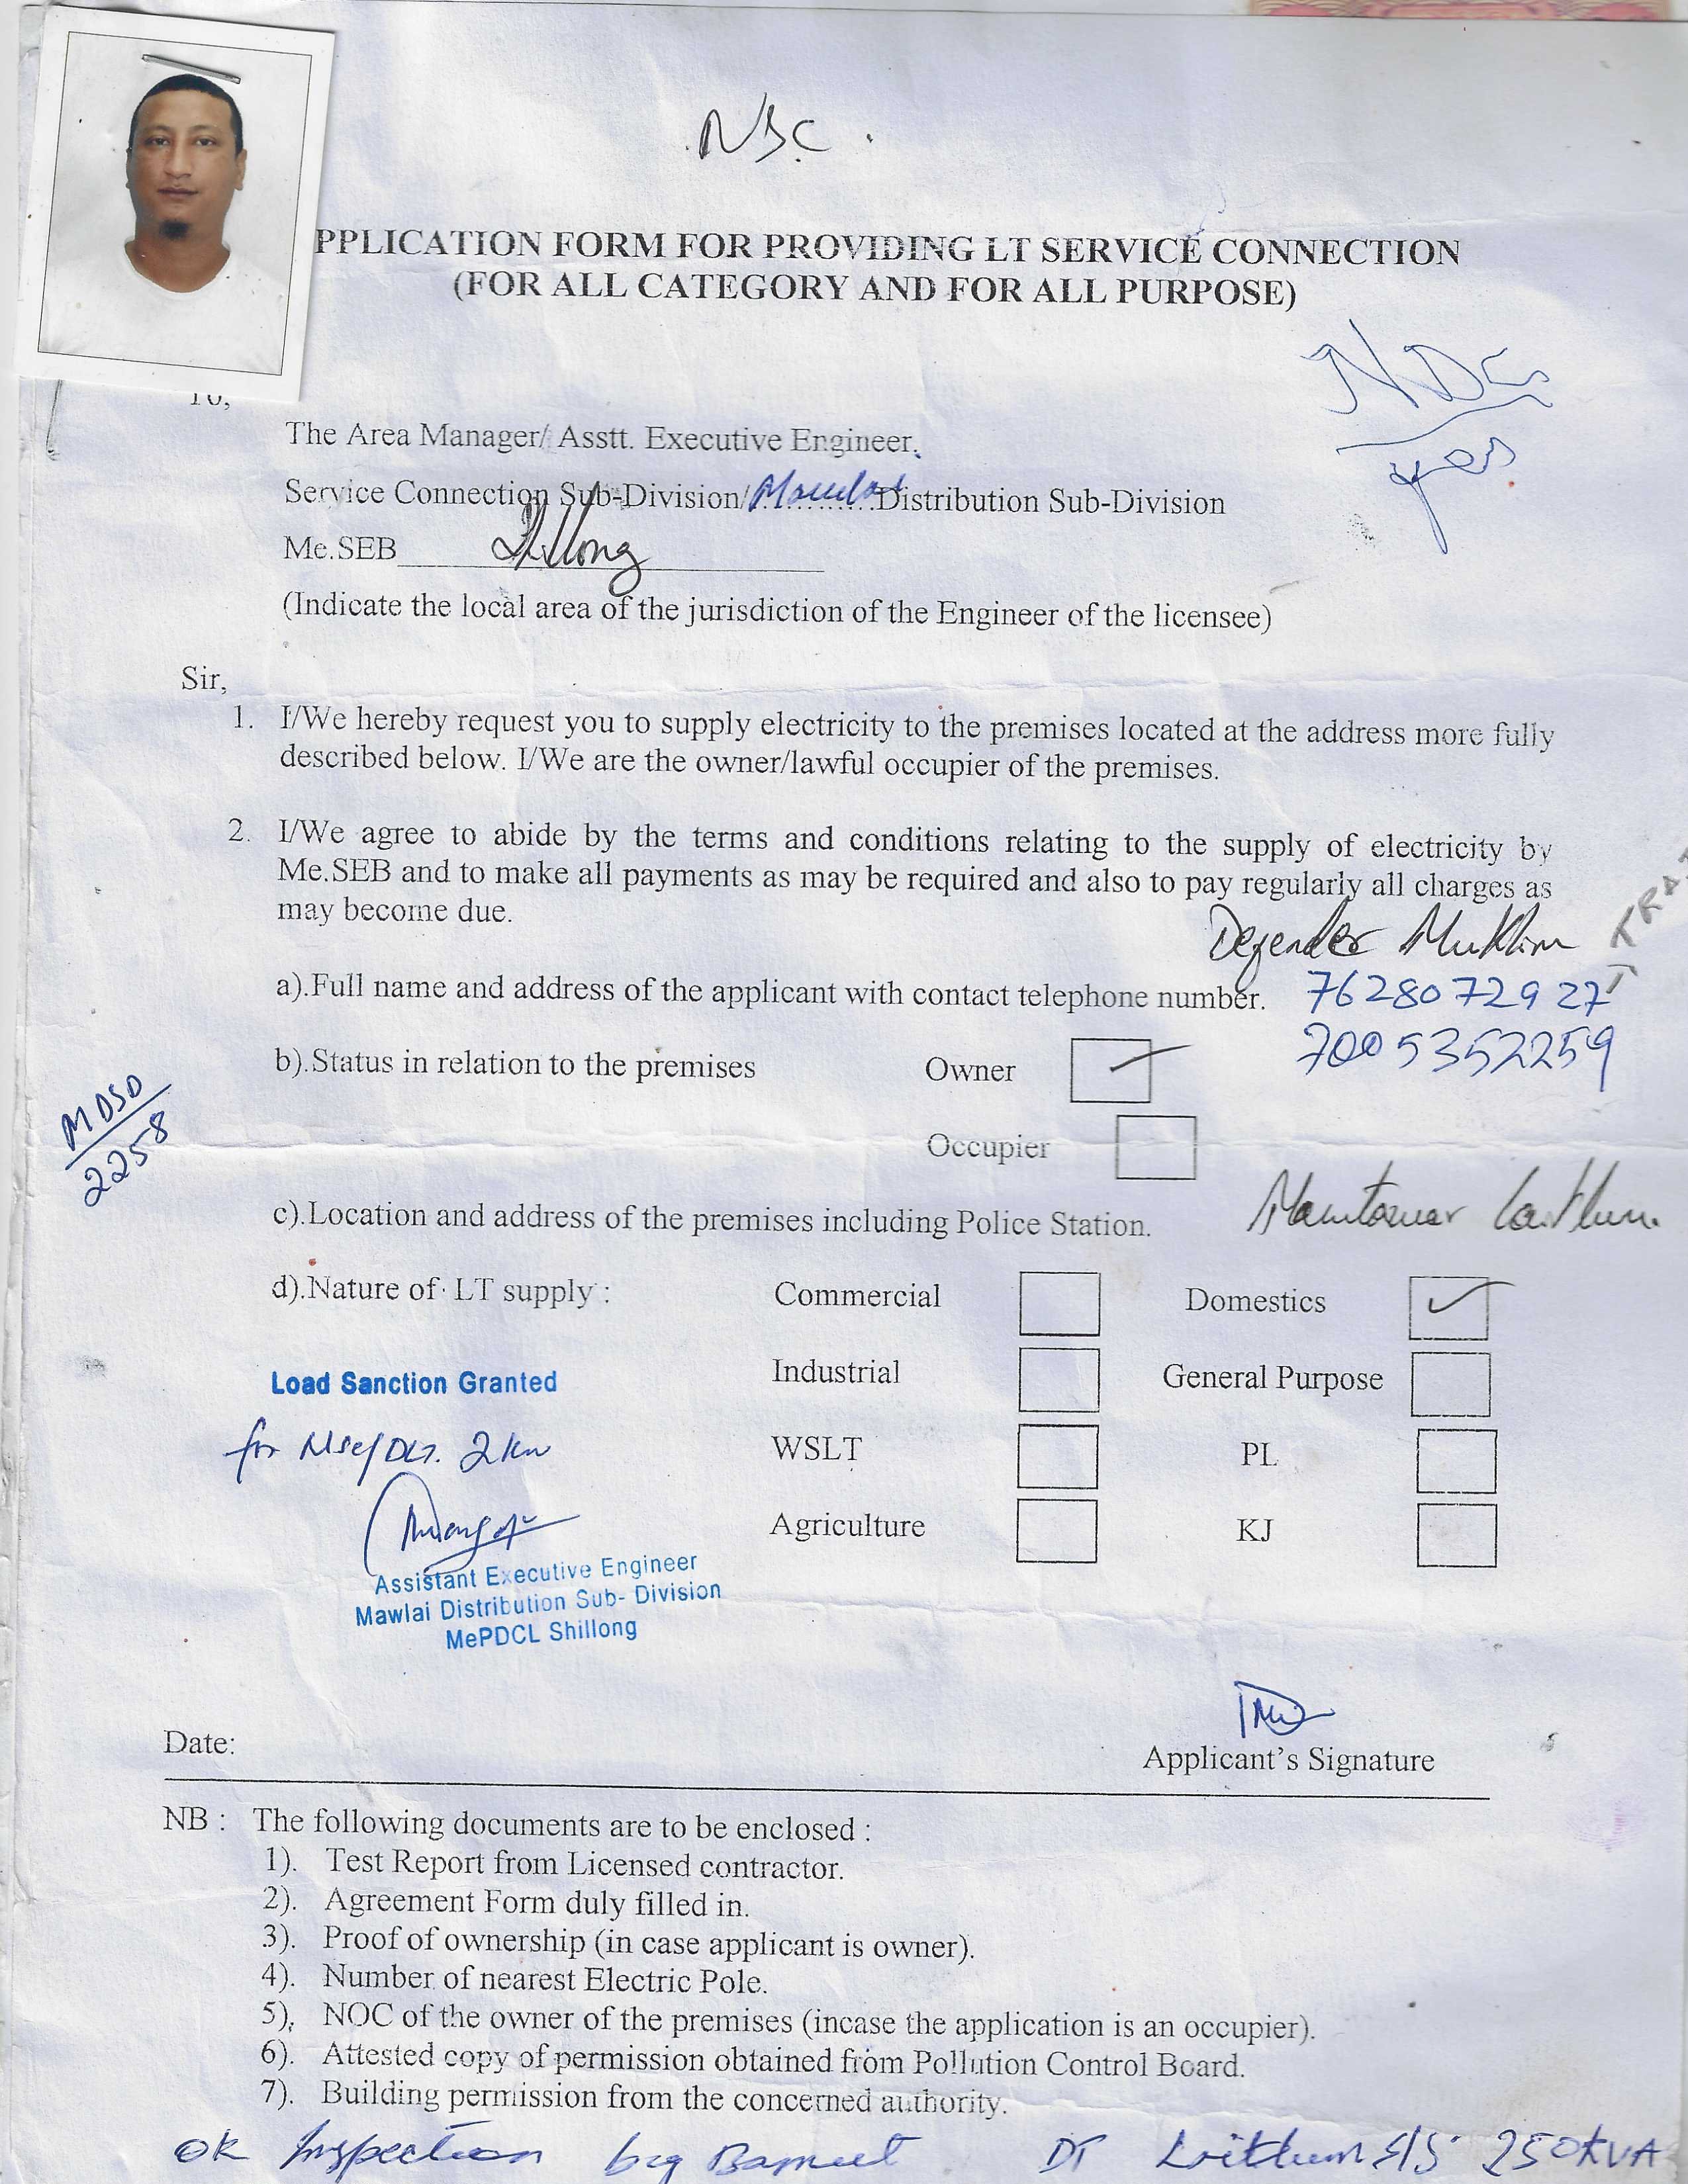 NSC
PPLICATION FORM FOR PROVIDING LT SERVICE CONNECTION
(FOR ALL CATEGORY AND FOR ALL PURPOSE)
NDC
yes
To,
The Area Manager/ Asstt. Executive Engineer,
Service Connection Sub-Division/ Mawlai Distribution Sub-Division
Me.SEB Shillong
(Indicate the local area of the jurisdiction of the Engineer of the licensee)
Sir,
1. I/We hereby request you to supply electricity to the premises located at the address more fully
described below. I/We are the owner/lawful occupier of the premises.
2. I/We agree to abide by the terms and conditions relating to the supply of electricity by
Me.SEB and to make all payments as may be required and also to pay regularly all charges as
may become due.
Defender Mukhim
a).Full name and address of the applicant with contact telephone number. 7628072927
7005352259
b).Status in relation to the premises Owner ✓
MDSD
2258
Occupier
c).Location and address of the premises including Police Station. Mawtawar Laitkhm.
d).Nature of LT supply : Commercial Domestics ✓
Load Sanction Granted
Industrial General Purpose
for 2 kw
WSLT PL
Agriculture KJ
Assistant Executive Engineer
Mawlai Distribution Sub- Division
MePDCL Shillong
Date:
Applicant's Signature
NB : The following documents are to be enclosed :
1). Test Report from Licensed contractor.
2). Agreement Form duly filled in.
3). Proof of ownership (in case applicant is owner).
4). Number of nearest Electric Pole.
5). NOC of the owner of the premises (incase the application is an occupier).
6). Attested copy of permission obtained from Pollution Control Board.
7). Building permission from the concerned authority.
OK Inspection DT S/S 250KVA